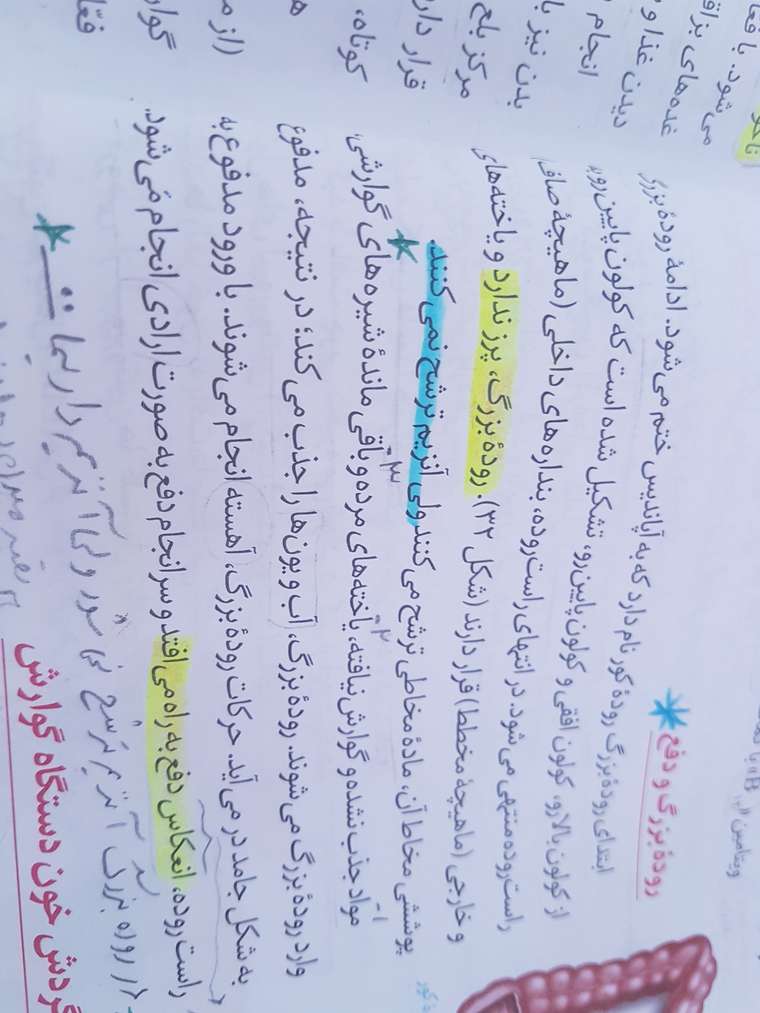 رودهٔ بزرگ و دفع
ابتدای رودهٔ بزرگ روده کور نام دارد که به آپاندیس ختم می‌شود. ادامهٔ رودهٔ بزرگ
از کولون بالارو، کولون افقی و کولون پایین‌رو، تشکیل شده است که کولون پایین‌رو به
راست‌روده منتهی می‌شود. در انتهای راست‌روده، بنداره‌های داخلی (ماهیچهٔ صاف)
و خارجی (ماهیچهٔ مخطط) قرار دارند (شکل ۳۲). رودهٔ بزرگ، پرز ندارد و یاخته‌های
پوششی مخاط آن، مادهٔ مخاطی ترشح می‌کنند ولی آنزیم ترشح نمی‌کنند.
مواد جذب نشده و گوارش نیافته، یاخته‌های مرده و باقی ماندهٔ شیره‌های گوارشی،
وارد رودهٔ بزرگ می‌شوند. رودهٔ بزرگ، آب و یون‌ها را جذب می‌کند؛ در نتیجه، مدفوع
به شکل جامد در می‌آید. حرکات رودهٔ بزرگ، آهسته انجام می‌شوند. با ورود مدفوع به
راست روده، انعکاس دفع به راه می‌افتد و سرانجام دفع به صورت ارادی انجام می‌شود.
در روده بزرگ آنزیم ترشح نمی شود ولی آنزیم دارد
گردش خون دستگاه گوارش
می‌شود. با
غده‌های
دیدن غذا و
انجام
بدن نیز
مرکز بلع
قرار
کوتاه،
(از
ویتامین